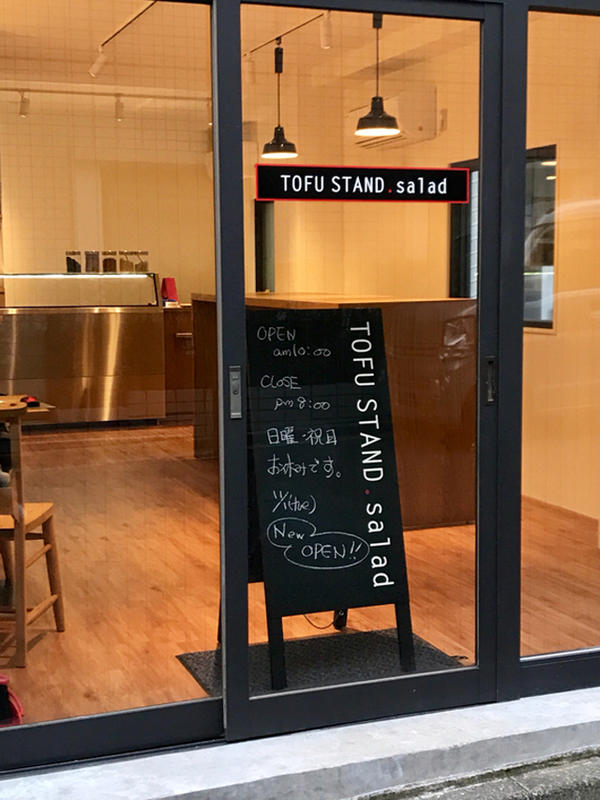 TOFU STAND.salad
OPEN
am10:00
CLOSE
pm8:00
日曜・祝日
お休みです。
11/1(tue)
New
OPEN!!
TOFU STAND.salad